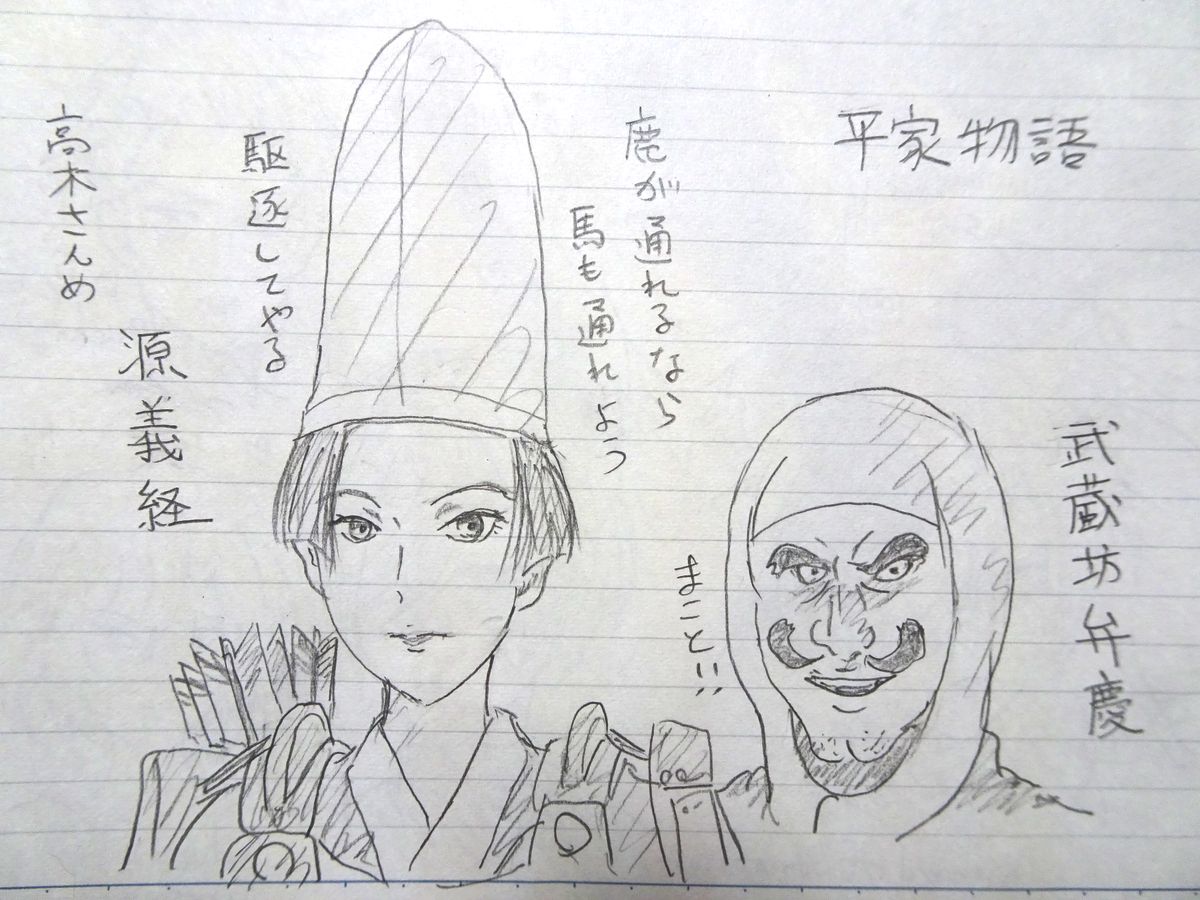 平家物語
鹿が通れるなら
馬も通れよう
駆逐してやる
高木さんめ
源義経
まこと!!
武蔵坊弁慶